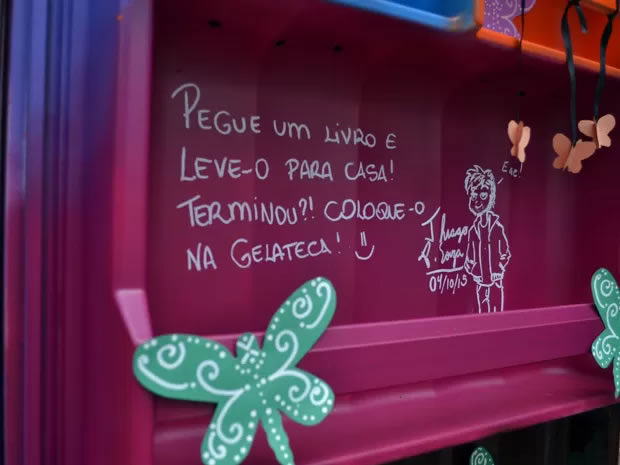 PEGUE UM LIVRO E
LEVE-O PARA CASA!
TERMINOU?! COLOQUE-O
NA GELATECA! =)
Eae!
Thiago
R.
04/10/15